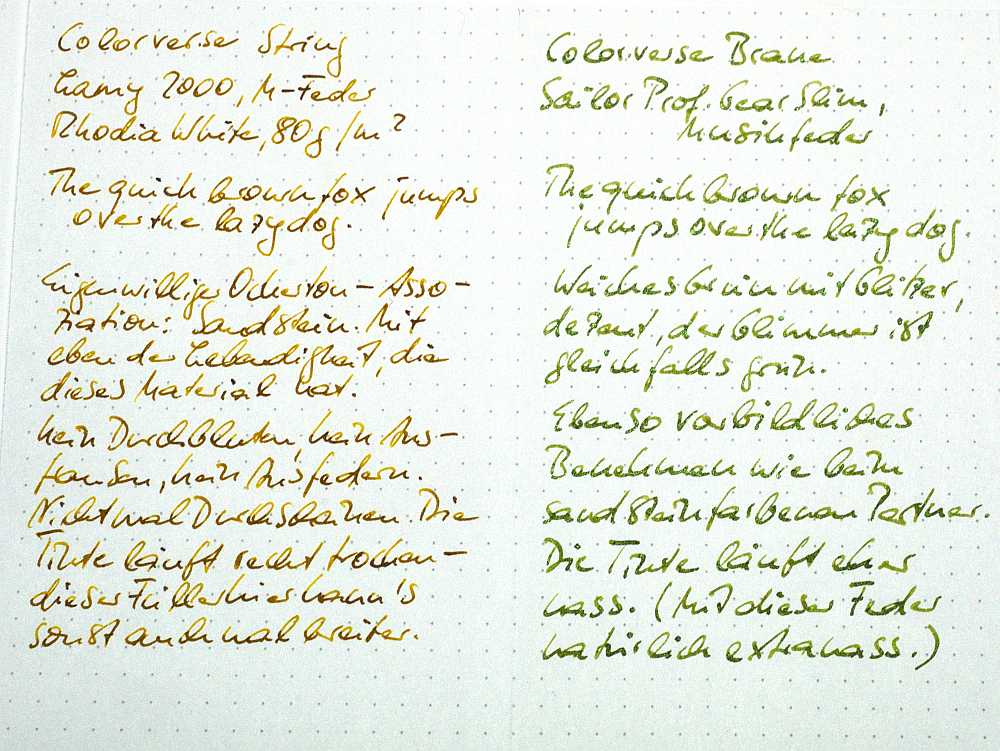 Colorverse String
Lamy 2000, M-Feder
Rhodia White, 80g/m²
The quick brown fox jumps
over the lazy dog.
Eigenwilliger Ockerton – Asso-
ziation: Sandstein. Mit
eben der Lebendigkeit, die
dieses Material hat.
Kein Durchbluten, kein Aus-
fransen, kein Ausfedern.
Nicht mal Durchscheinen. Die
Tinte läuft recht trocken –
dieser Füller hier kann's
sonst auch mal breiter.
Colorverse Brane
Sailor Prof. Gear Slim,
Musikfeder
The quick brown fox
jumps over the lazy dog.
Weiches Grün mit Glitzer,
dezent, der Glimmer ist
gleichfalls grün.
Ebenso vorbildliches
Benehmen wie beim
sandsteinfarbenen Partner.
Die Tinte läuft eher
nass. (Mit dieser Feder
natürlich extranass.)